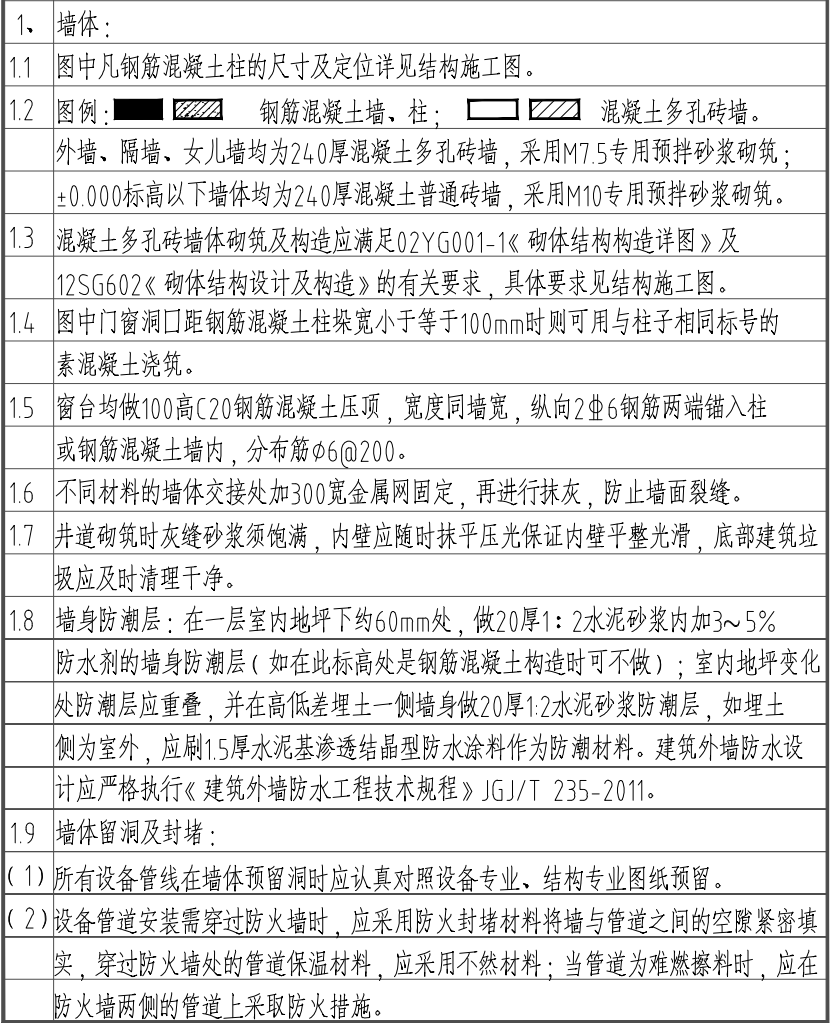 1、 墙体：
1.1 图中凡钢筋混凝土柱的尺寸及定位详见结构施工图。
1.2 图例： 钢筋混凝土墙、柱； 混凝土多孔砖墙。
外墙、隔墙、女儿墙均为240厚混凝土多孔砖墙，采用M7.5专用预拌砂浆砌筑；
±0.000标高以下墙体均为240厚混凝土普通砖墙，采用M10专用预拌砂浆砌筑。
1.3 混凝土多孔砖墙体砌筑及构造应满足02YG001-1《砌体结构构造详图》及
12SG602《砌体结构设计及构造》的有关要求，具体要求见结构施工图。
1.4 图中门窗洞口距钢筋混凝土柱垛宽小于等于100mm时则可用与柱子相同标号的
素混凝土浇筑。
1.5 窗台均做100高C20钢筋混凝土压顶，宽度同墙宽，纵向2⌽6钢筋两端锚入柱
或钢筋混凝土墙内，分布筋Φ6@200。
1.6 不同材料的墙体交接处加300宽金属网固定，再进行抹灰，防止墙面裂缝。
1.7 井道砌筑时灰缝砂浆须饱满，内壁应随时抹平压光保证内壁平整光滑，底部建筑垃
圾应及时清理干净。
1.8 墙身防潮层：在一层室内地坪下约60mm处，做20厚1：2水泥砂浆内加3～5%
防水剂的墙身防潮层（如在此标高处是钢筋混凝土构造时可不做）；室内地坪变化
处防潮层应重叠，并在高低差埋土一侧墙身做20厚1:2水泥砂浆防潮层，如埋土
侧为室外，应刷1.5厚水泥基渗透结晶型防水涂料作为防潮材料。建筑外墙防水设
计应严格执行《建筑外墙防水工程技术规程》JGJ/T 235-2011。
1.9 墙体留洞及封堵：
(1) 所有设备管线在墙体预留洞时应认真对照设备专业、结构专业图纸预留。
(2) 设备管道安装需穿过防火墙时，应采用防火封堵材料将墙与管道之间的空隙紧密填
实，穿过防火墙处的管道保温材料，应采用不然材料；当管道为难燃擦料时，应在
防火墙两侧的管道上采取防火措施。